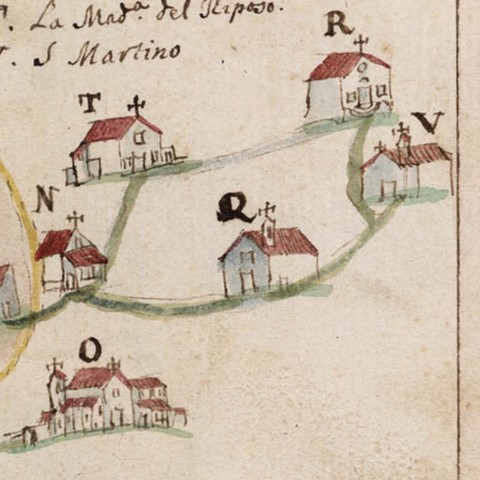 . La Mad.ª del Riposo.
. S Martino
R
T
V
N
Q
O